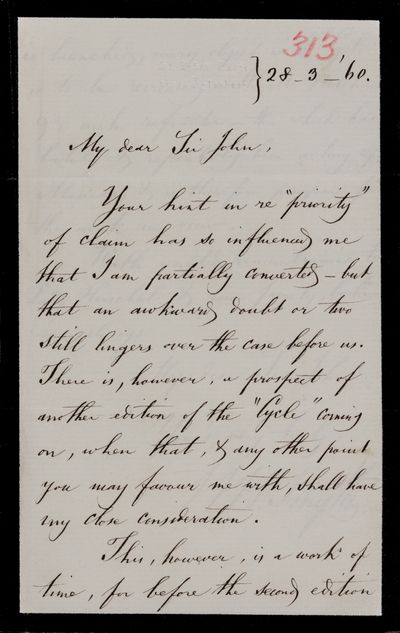 313
28-3-'60.
My dear Sir John,
Your hint in re "priority"
of claim has so influenced me
that I am partially converted – but
that an awkward doubt or two
still lingers over the case before us.
There is, however, a prospect of
another edition of the "Cycle" coming
on, when that, & any other point
you may favour me with, shall have
my close consideration.
This, however, is a work of
time, for before the second edition